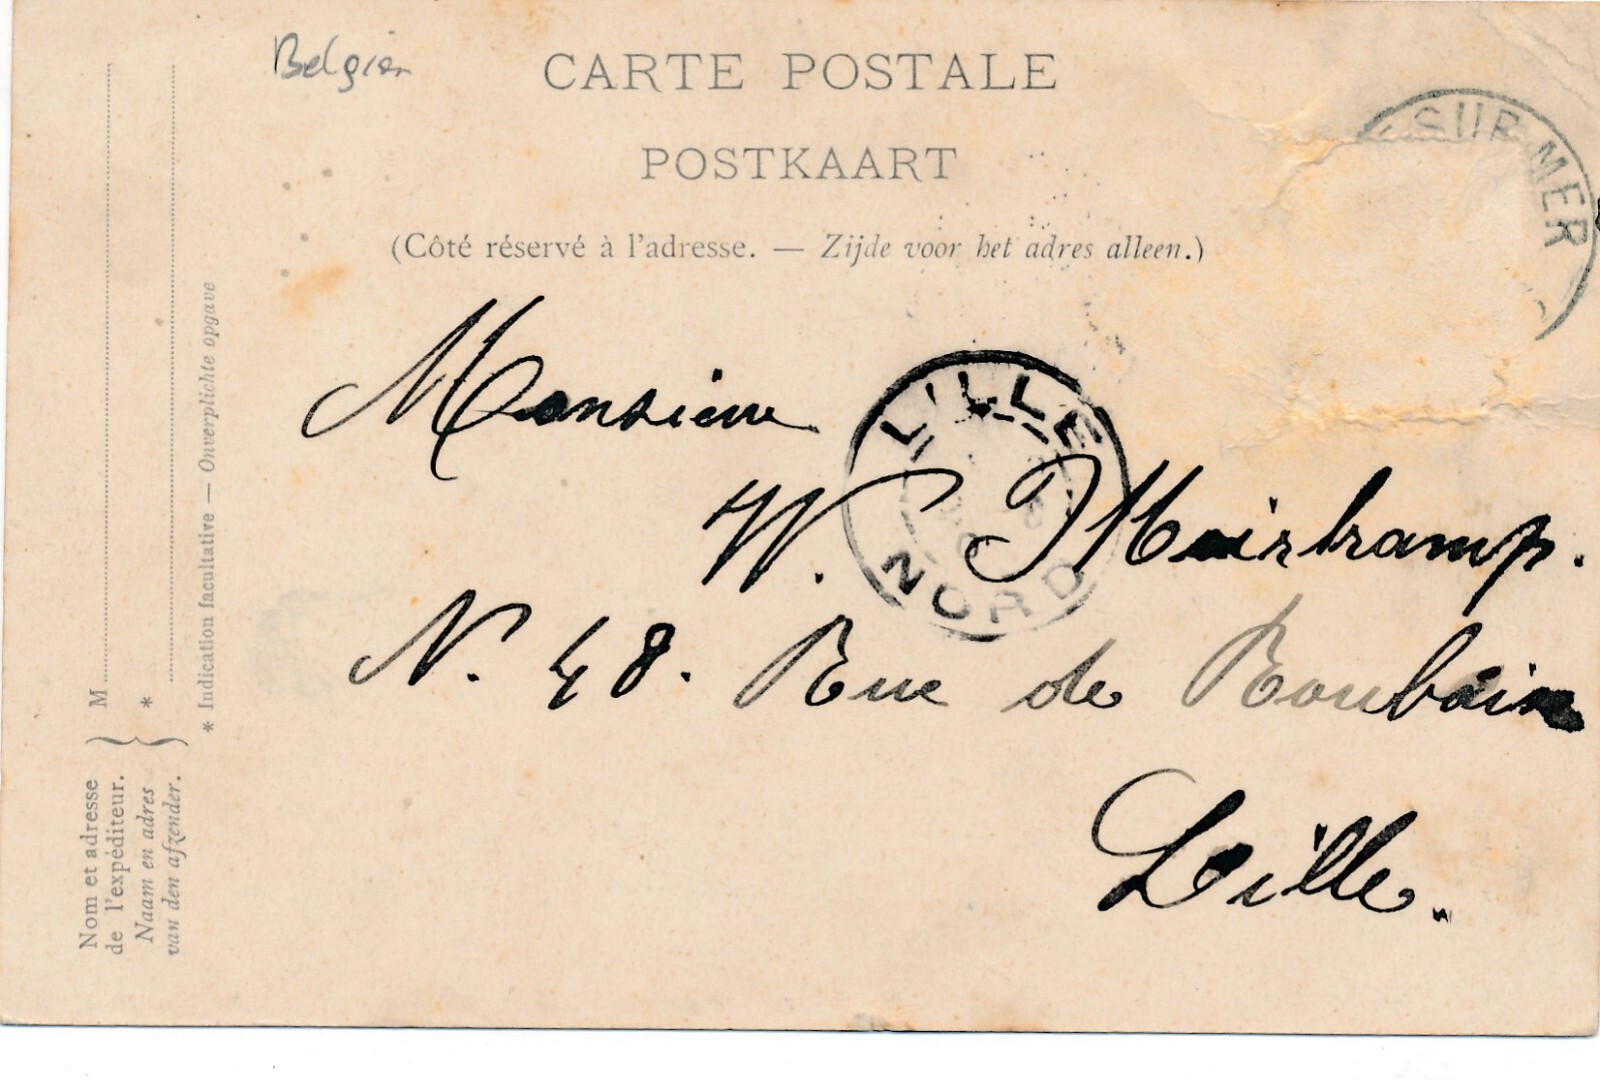 Belgien
CARTE POSTALE
POSTKAART
(Côté réservé à l'adresse. — Zijde voor het adres alleen.)
SUR MER
Monsieur
LILLE
NORD
W.
N. 48. Rue de Roubaix
Lille.
M
*
* Indication facultative — Onverplichte opgave
Nom et adresse
de l'expéditeur.
Naam en adres
van den afzender.